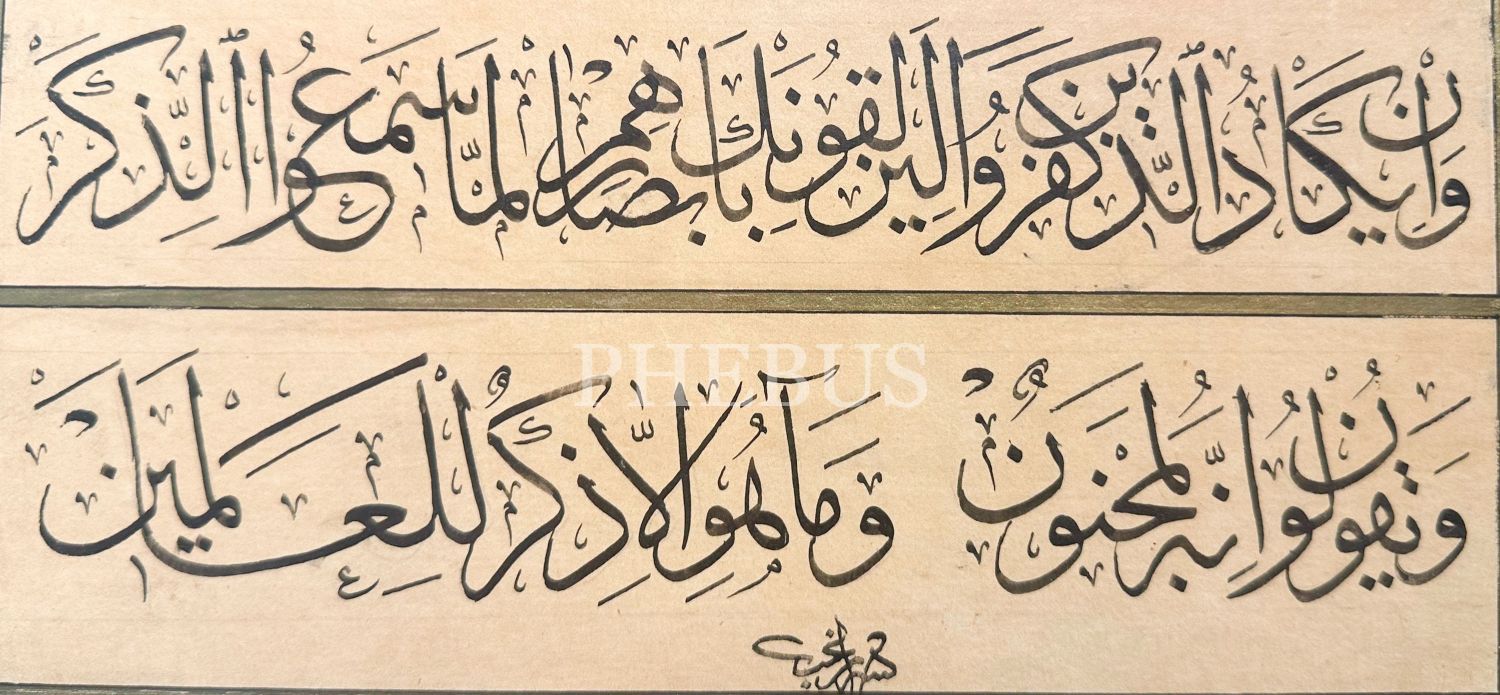 وَإِنْ يَكَادُ الَّذِينَ كَفَرُوا لَيُزْلِقُونَكَ بِأَبْصَارِهِمْ لَمَّا سَمِعُوا الذِّكْرَ
وَيَقُولُونَ إِنَّهُ لَمَجْنُونٌ وَمَا هُوَ إِلَّا ذِكْرٌ لِلْعَالَمِينَ
PHEBUS